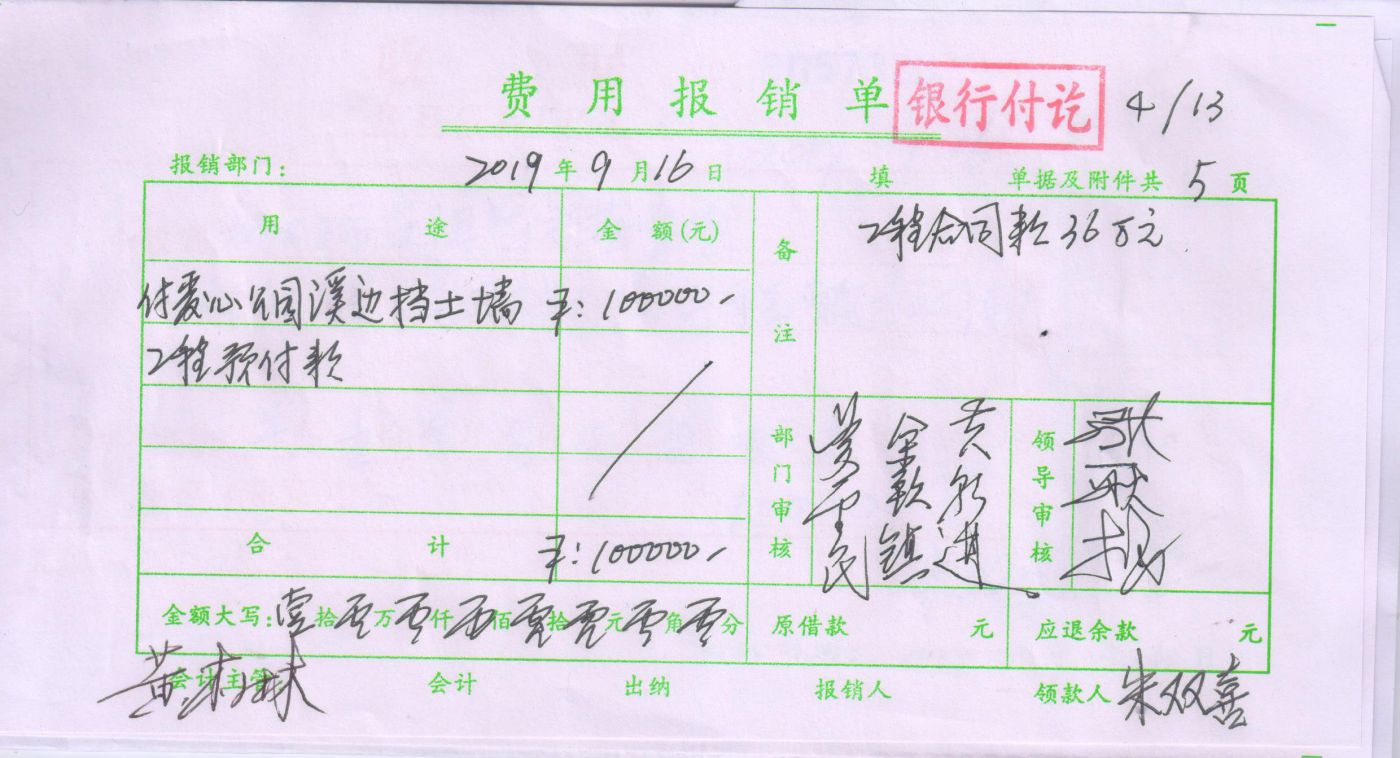 费用报销单 银行付讫 4/13
报销部门: 2019年9月16日 填 单据及附件共5页
用途 金额(元) 备注 工程合同款36万元
付爱心公园溪边挡土墙 ¥:100000-
工程预付款
部门审核 领导审核
合计 ¥:100000-
金额大写:壹拾零万零仟零佰零拾零元零角零分 原借款 元 应退余款 元
会计主管 会计 出纳 报销人 领款人 朱双喜